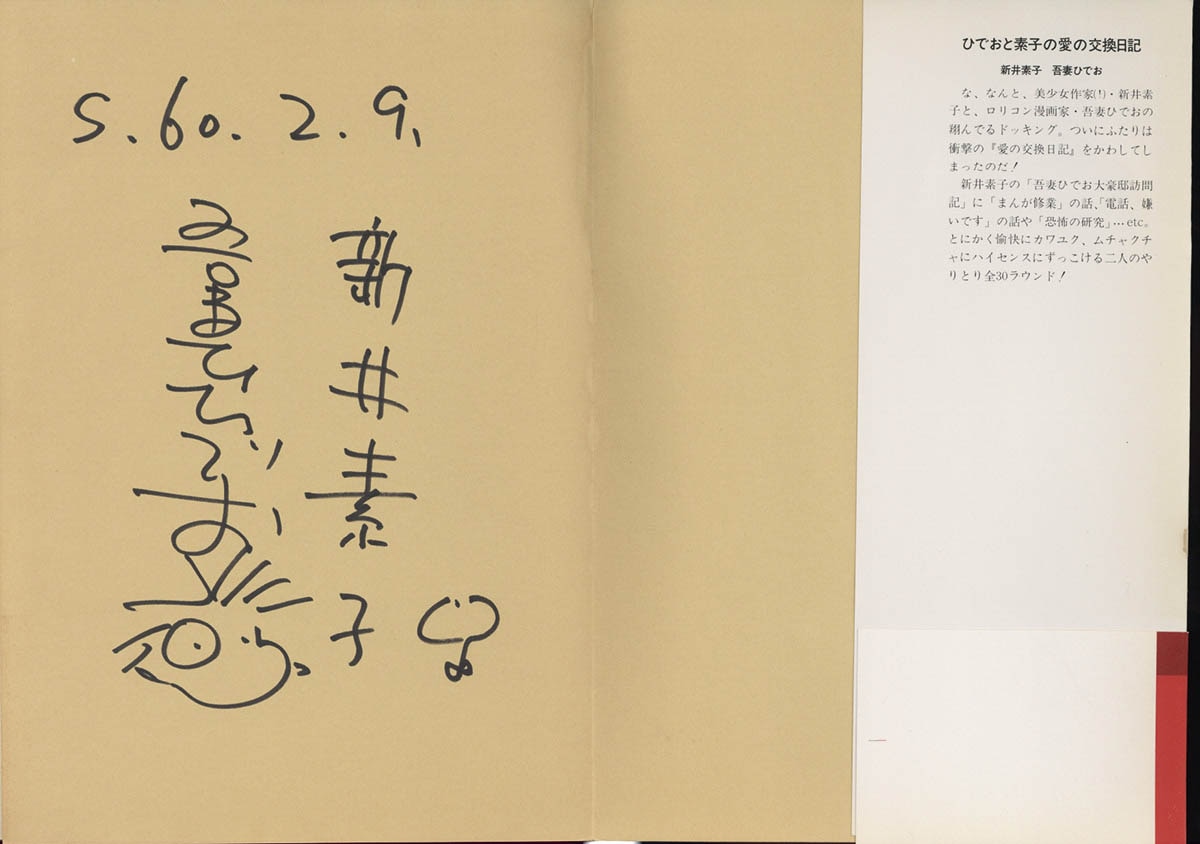 S.60.2.9.
新井素子
吾妻ひでお
ひでおと素子の愛の交換日記
新井素子 吾妻ひでお
な、なんと、美少女作家(!)・新井素
子と、ロリコン漫画家・吾妻ひでおの
翔んでるドッキング。ついにふたりは
衝撃の『愛の交換日記』をかわしてし
まったのだ!
新井素子の「吾妻ひでお大豪邸訪問
記」に「まんが修業」の話、「電話、嫌
いです」の話や「恐怖の研究」…etc。
とにかく愉快にカワユク、ムチャクチ
ャにハイセンスにずっこける二人のや
りとり全30ラウンド!